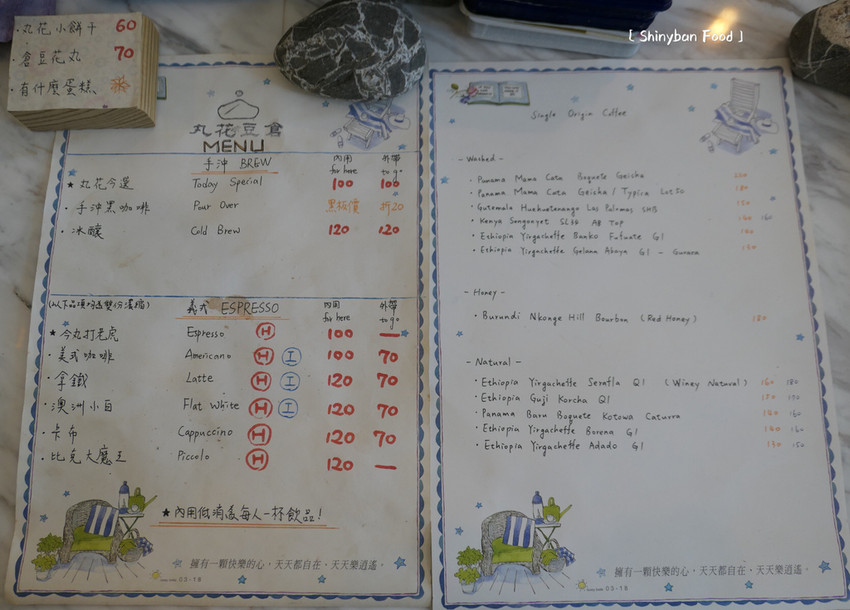 · 丸花小餅干 60
· 倉豆花丸 70
· 有什麼蛋糕
[ Shinyban Food ]
丸花豆倉
MENU
手沖 BREW 內用 for here 外帶 to go
★ 丸花今選 Today Special 100 100
· 手沖黑咖啡 Pour Over 黑板價 折20
· 冰釀 Cold Brew 120 120
義式 ESPRESSO 內用 for here 外帶 to go
★ 今丸打老虎 Espresso H 100 —
· 美式咖啡 Americano H I 100 70
· 拿鐵 Latte H I 120 70
· 澳洲小白 Flat White H I 120 70
· 卡布 Cappuccino H 120 70
· 比克大魔王 Piccolo H 120 —
★內用低消為每人一杯飲品!
擁有一顆快樂的心,天天都自在、天天樂逍遙。
03-18
Single Origin Coffee
- Washed -
· Panama Mama Cata Boquete Geisha
· Panama Mama Cata Geisha / Typica 180
· Guatemala Huehuetenango Las Palomas SHB 150
· Kenya AB Top 160
· Ethiopia Yirgacheffe Banko G1
· Ethiopia Yirgacheffe G1 -
- Honey -
· Burundi Nkonge Hill Bourbon (Red Honey) 180
- Natural -
· Ethiopia Yirgacheffe Q1 (Winey Natural) 160 180
· Ethiopia Guji Korcha Q1 170
· Panama Baru Boquete Kotowa Caturra 160
· Ethiopia Yirgacheffe Borena G1 160
· Ethiopia Yirgacheffe Adado G1 130 150
擁有一顆快樂的心,天天都自在、天天樂逍遙。
03-18